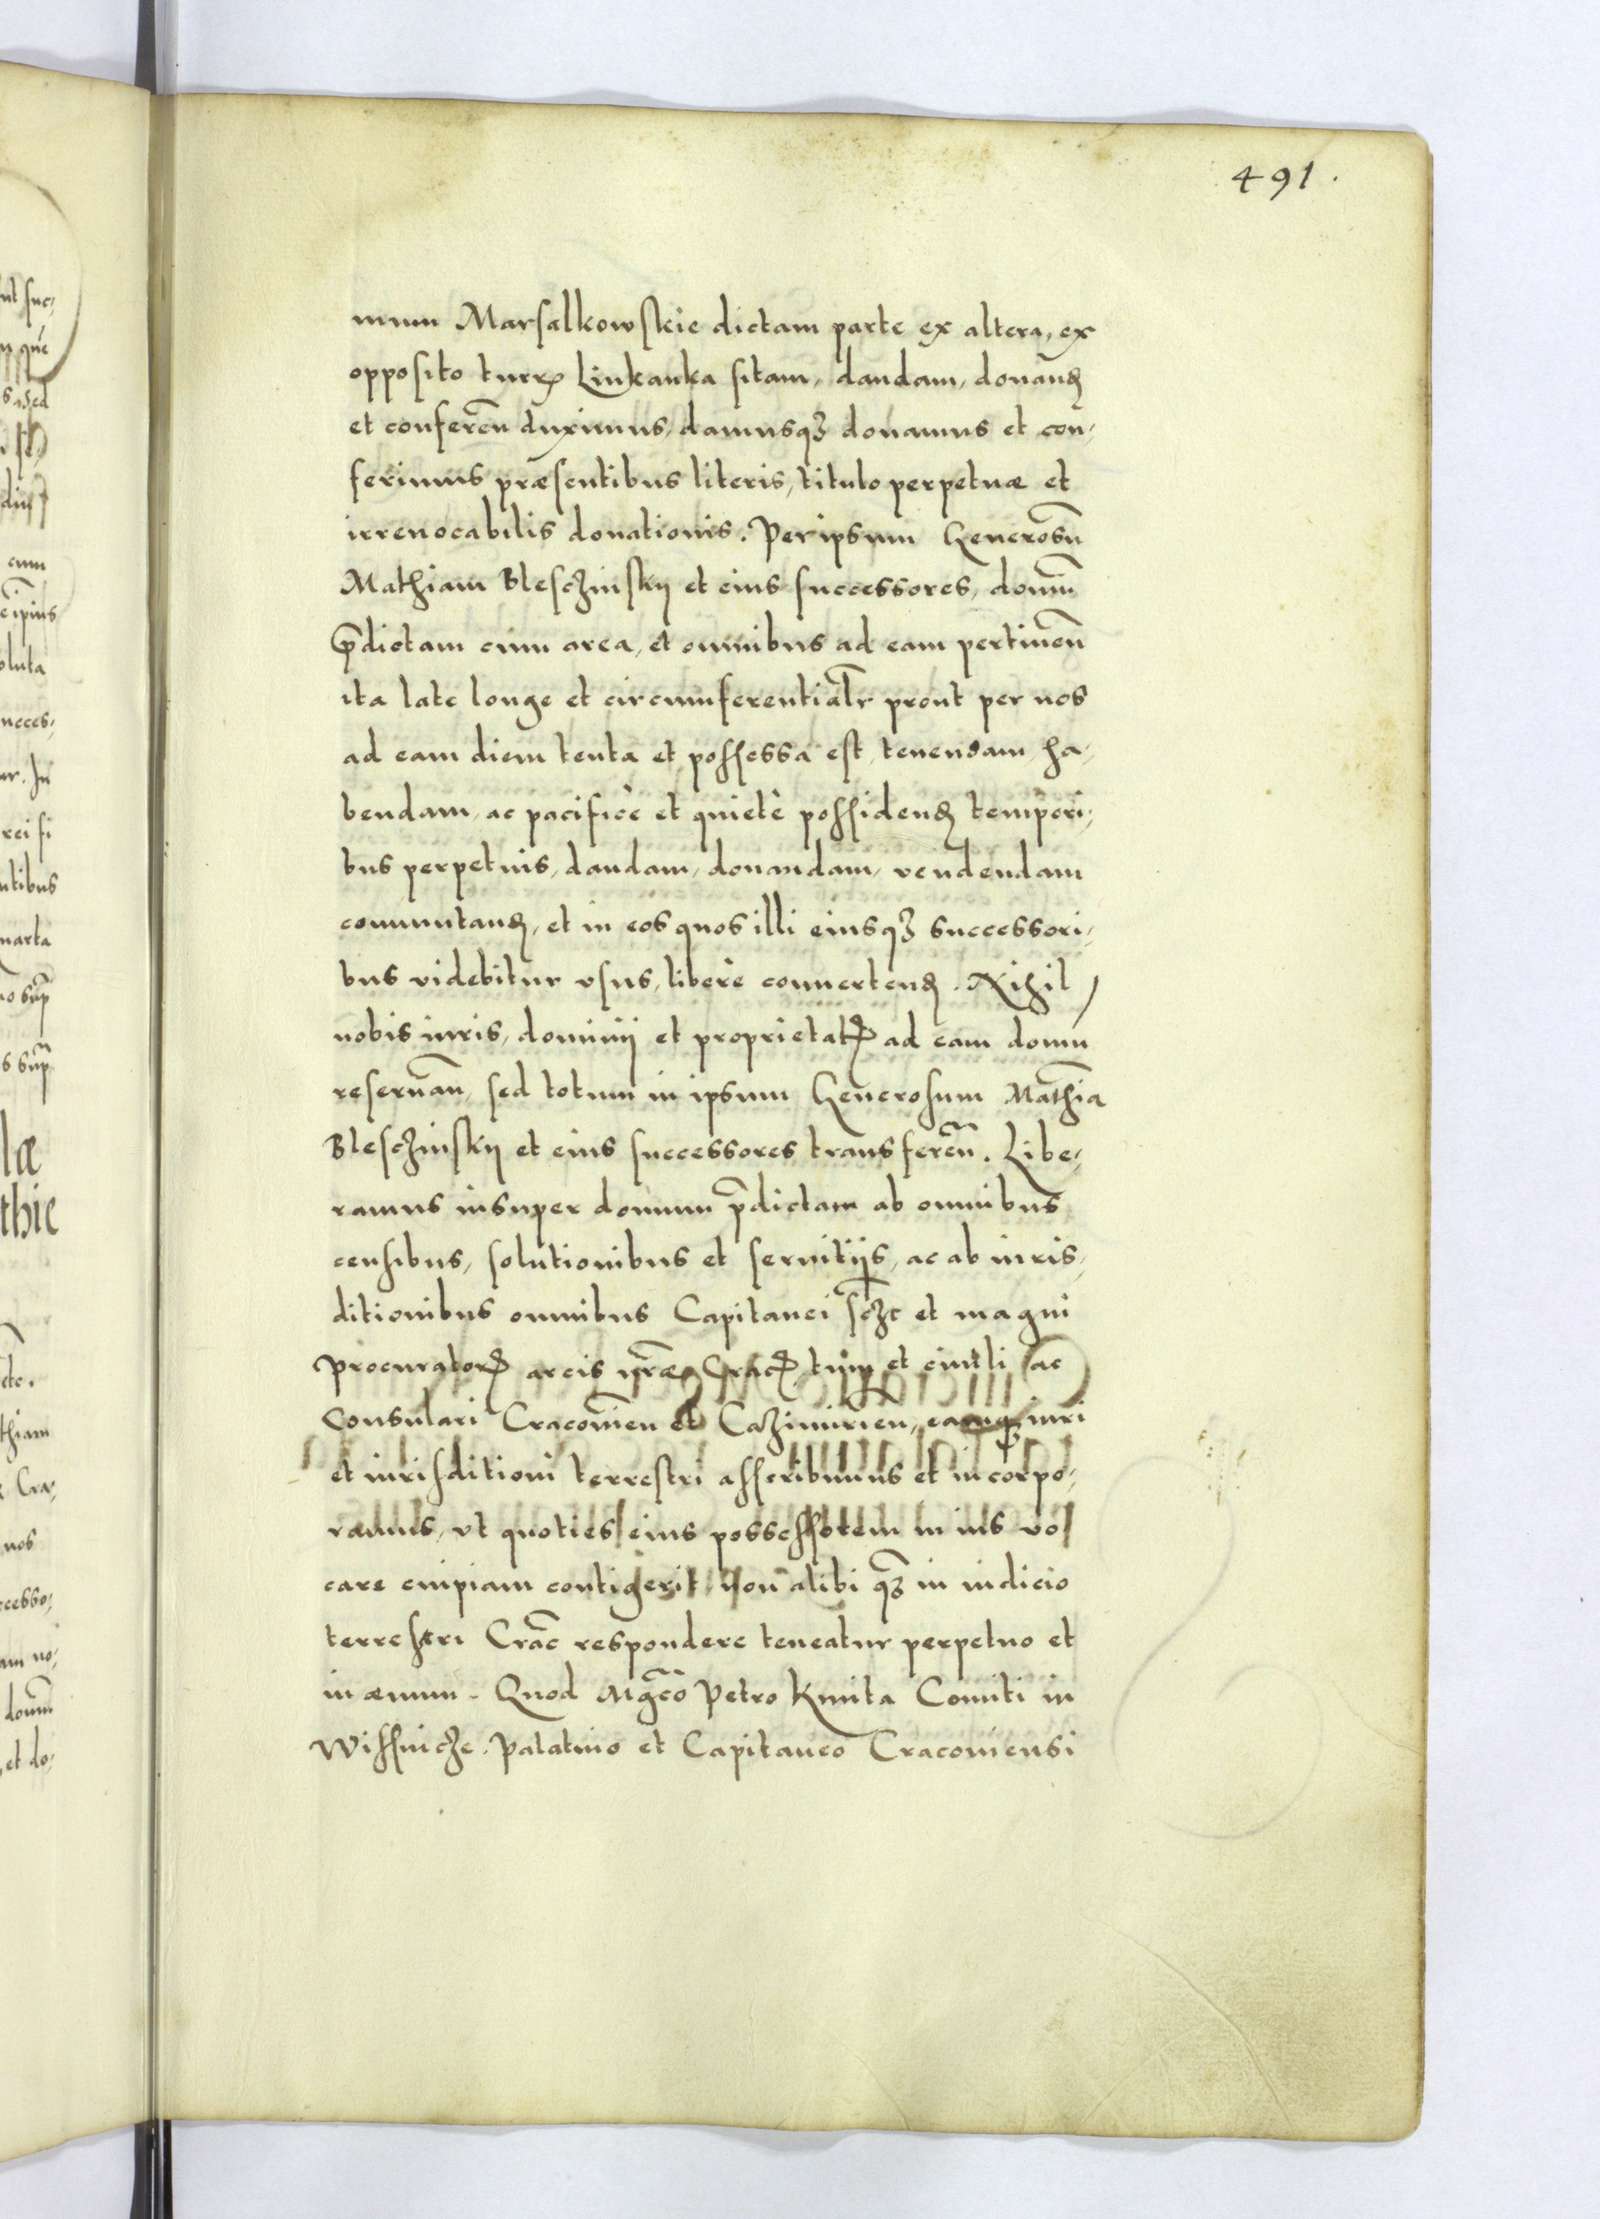 491.
mum Marsalkowskie dictam parte ex altera, ex
opposito turris Linkanka sitam, dandam, donand
et conferen duximus, damusq3 donamus et con,
ferimus præsentibus literis, titulo perpetuæ et
irreuocabilis donationis. Per ipsum Generosũ
Mathiam Bleschinskij et eius successores, domũ
p̄dictam cum area, et omnibus ad eam pertinen̄
ita late longe et circumferentialr̄ prout per nos
ad eam diem tenta et possessa est, tenendam, ha,
bendam, ac pacificè et quietè possidend tempori,
bus perpetuis, dandam, donandam, vendendam
commutand, et in eos quos illi eiusq3 successori,
bus videbitur vsus, liberè conuertend. Nihil
nobis iuris, dominij et proprietatis ad eam domu
reseruan̄, sed totum in ipsum Generosum Mathiā
Bleschinskij et eius successores transferen̄. Libe,
ramus insuper domum p̄dictam ab omnibus
censibus, solutionibus et seruitijs, ac ab iuris,
ditionibus omnibus Capitanei scz et magni
procuratoris arcis nr̄æ Crac tum et ciuili ac
Consulari Cracouien̄ et Cazimirien̄, eamq3 iuri
et iurisditioni terrestri asscribimus et incorpo,
ramus, vt quoties eius possessorem in ius vo
care cuipiam contigerit non alibi q3 in iudicio
terrestri Crac̄ respondere teneatur perpetuo et
in æuum. Quod Mgc̄o Petro Kmita Comiti in
Wissnicze. Palatino et Capitaneo Cracouiensi